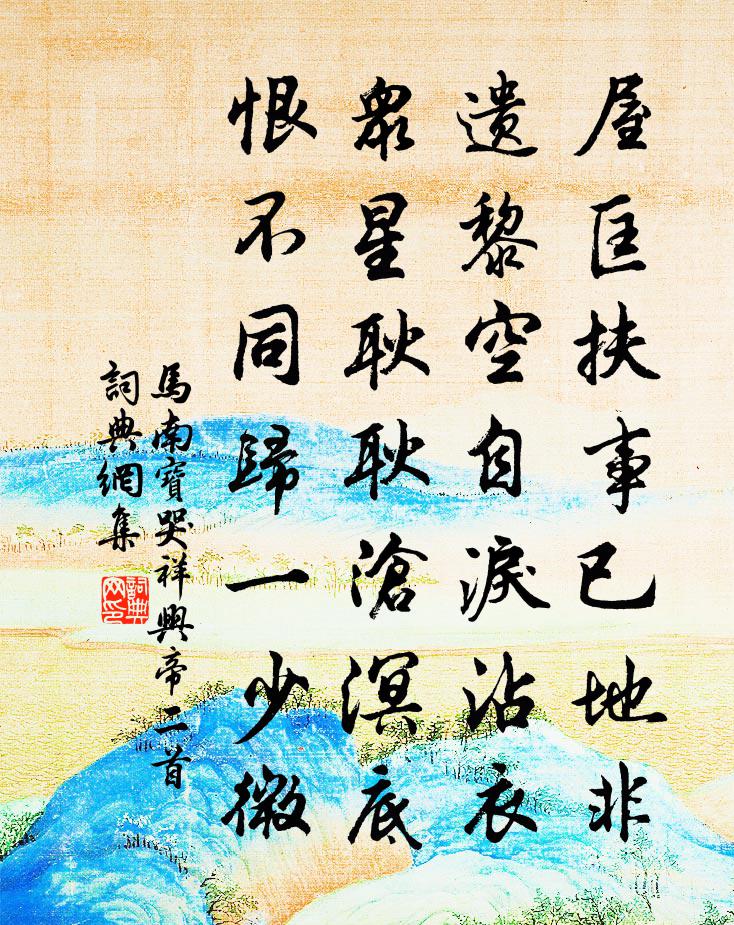 屋匡扶事已地非
遗黎空自淚沾衣
眾星耿耿滄溟底
恨不同歸一少微
馬南寶哭祥興帝二首
詞典網集
詞典网印